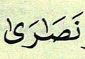 نَصَارَىٰ